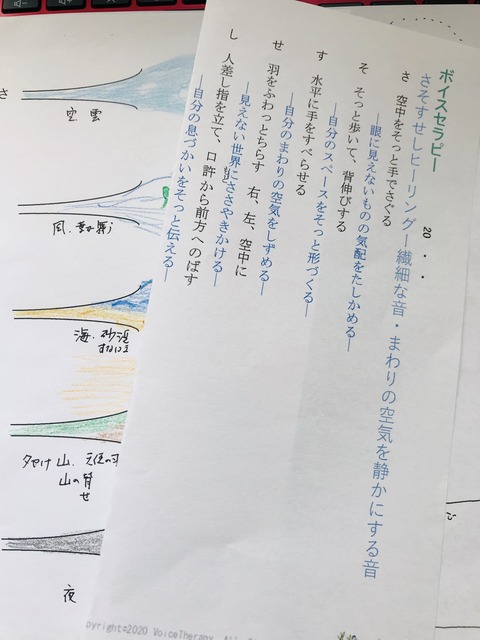 ボイスセラピー
20 ・ ・
さそすせしヒーリング―繊細な音・まわりの空気を静かにする音
さ 空中をそっと手でさぐる
―眼に見えないものの気配をたしかめる―
そ そっと歩いて、背伸びする
―自分のスペースをそっと形づくる―
す 水平に手をすべらせる
―自分のまわりの空気をしずめる―
せ 羽をふわっとちらす 右、左、空中に
―見えない世界にささやきかける―
し 人差し指を立て、口許から前方へのばす
―自分の息づかいをそっと伝える―
さ
空.雲
海.砂浜
夕やけ山.
山の背
せ
夜
pyright©2020 VoiceTherapy